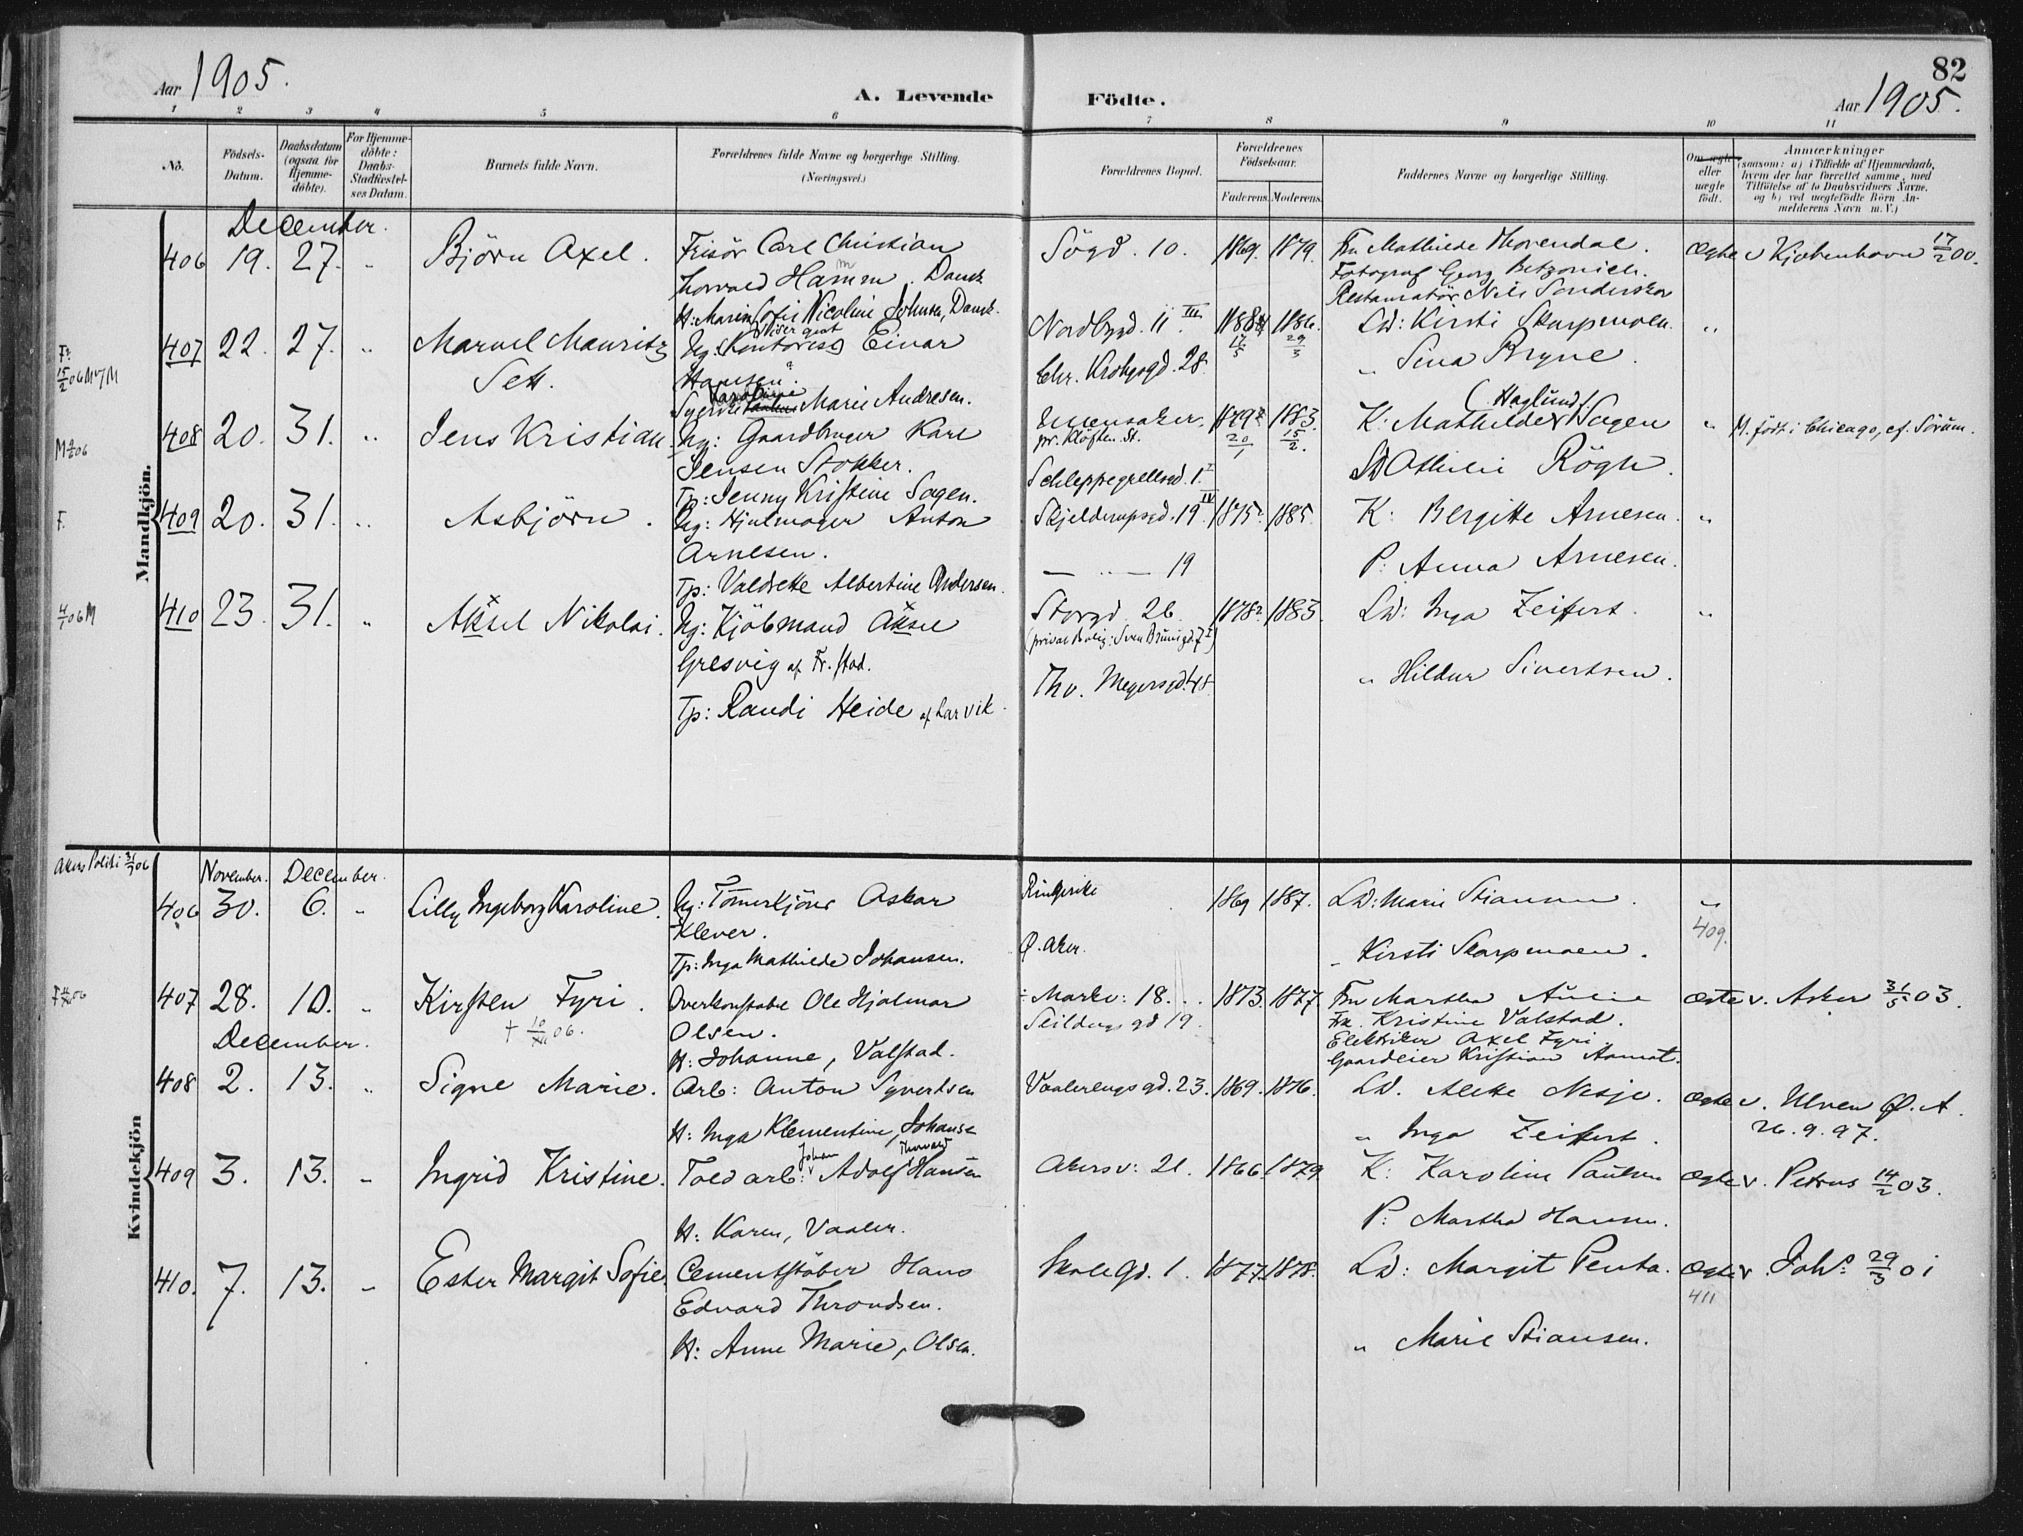 82
Aar 1905.
A. Levende Födte.
Aar 1905.
1 2 3 4 5 6 7 8 9 10 11
No.
Födsels-Datum.
Daabsdatum (ogsaa for Hjemme-döbte).
For Hjemme-döbte: Daabs-Stadfæstel-ses Datum.
Barnets fulde Navn.
Forældrenes fulde Navne og borgerlige Stilling.
(Næringsvei.)
Forældrenes Bopæl.
Forældrenes Födselsaar.
Faderens. Moderens.
Faddernes Navne og borgerlige Stilling.
Om ægte eller uægte födt.
Anmærkninger
(saasom: a) i Tilfælde af Hjemmedaab,
hvem der har forrettet samme, med
Tilföielse af to Daabsvidners Navne.
og b) ved uægtefödte Börn An-
melderens Navn m. V.)
Mandkjön.
December.
406 19. 27. „ Björn Axel. Frisör Carl Christian
Thorvald Hamm. Dansk
H: Maren Sofie Nicoline Johnsen, Dansk.
Sögd. 10. 1869. 1879.
Fru Mathilde Thorendal.
Fotograf Georg
Restauratör Nils
Ægte v Kjöbenhavn 17/2 00.
407 22. 27. „ Marvel Mauritz
Sett.
Ug: Einar
Hansen.
Syerske Marie Andresen.
Nordbygd. 11 III
Chr. Krohgsgd. 28.
1884 17/5 1886. 29/3
Ld: Kirsti Skarpmoen.
„ Sina Bryne.
„
408 20. 31. „ Jens Kristian
Ug: Gaardbruger Karl
Jensen Stokker.
Tp: Jenny Kristine Sagen.
Ullensaker.
pr. Klöften St.
Schleppegrellsgd. 1 I
1879 20/1 1883. 15/2.
(Haglund)
K: Mathilde Sagen
Othilie Rögh.
„ M. födt i Chicago, cf. Sörum.
F.
409 20. 31. „ Asbjörn.
Ug: Hjulmager Anton
Arnesen.
Tp: Valdikke Albertine Andersen.
Skjelderupsgd. 19 IV
— „ — 19
1875 1885.
K: Bergitte Arnesen.
P: Anna Arnesen.
„
4/1 06 M
410 23. 31. „ Aksel Nikolai.
Ug: Kjöbmand Aksel
Gresvig af Fr.stad.
Tp: Randi Heide af Larvik.
Storgd 26
(privat Bolig: Sven Brunsgd. 7 I)
Thv. Meyersgd. 48.
1878 1883.
Ld: Inga Zeiffert.
„ Hildur Sivertsen.
„
Kvindekjön
Akers Politi 31/7 06
November. December.
406 30. 6. „ Lilly Ingeborg Karoline.
Ug: Tömmerkjörer Askar
Klever.
Tp: Inga Mathilde Johansen.
Ringerike
Ø. Aker.
1869 1887.
Ld: Marie Stiansen.
„ Kirsti Skarpmoen.
„
409.
407 28. 10. „ Kirsten Fyri.
† 10/XII 06.
Overkonstabel Ole Hjalmar
Olsen.
H: Johanne, Valstad.
Markv: 18.
Seildugsgd 19.
1873. 1877.
Fru Martha
Frk. Kristine Valstad.
Elektriker Axel Fyri
Gaardeier Kristian Aamot.
Ægte v. Asker 31/5 03.
December.
408 2. 13. „ Signe Marie.
Arb: Anton Syvertsen
H: Inga Klementine, Johansen
Vaalerengsgd. 23. 1869. 1876.
Ld. Alete Nesje.
„ Inga Zeiffert.
Ægte v. Ulven Ø. A.
26. 9. 97.
409 3. 13. „ Ingrid Kristine.
Johan Thorvard
Toldarb: Adolf Hansen
H: Karen, Vaaler.
Akersv: 21. 1866. 1879.
K: Karoline Paulsen
P: Martha Hansen.
Ægte v. Petrus 14/2 03.
410. 7. 13. „ Ester Margit Sofie.
Cementstöber Hans
Edvard Throndsen.
H: Anne Marie, Olsen.
Skolegd. 1. 1877. 1878.
Ld: Margit Penta.
„ Marie Stiansen.
Ægte v. Johs. 29/3 01
411